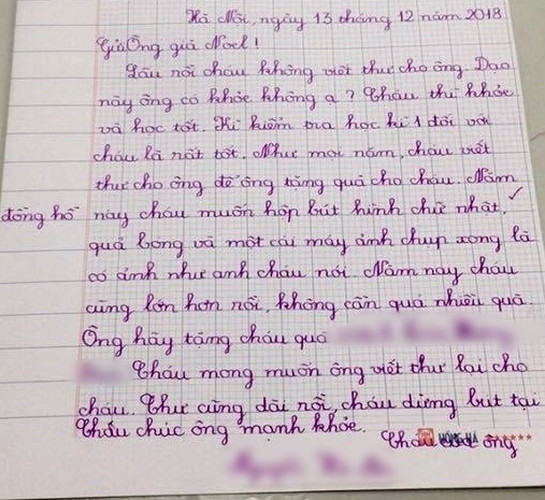 Hà Nội, ngày 13 tháng 12 năm 2018
Gửi Ông già Noel!
Lâu rồi cháu không viết thư cho ông. Dạo
này ông có khỏe không ạ? Cháu thì khỏe
và học tốt. Kì kiểm tra học kì 1 đối với
cháu là rất tốt. Như mọi năm, cháu viết
thư cho ông để ông tặng quà cho cháu. Năm
đồng hồ này cháu muốn hộp bút hình chữ nhật, ✓
quả bóng và một cái máy ảnh chụp xong là
có ảnh như anh cháu nói. Năm nay cháu
cũng lớn hơn rồi, không cần quá nhiều quà.
Ông hãy tặng cháu quà
Cháu mong muốn ông viết thư lại cho
cháu. Thư cũng dài rồi, cháu dừng bút tại
Cháu chúc ông mạnh khỏe.
Cháu ông
HỒNG HÀ